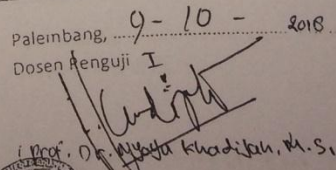 Palembang, 9 - 10 - 2018
Dosen Penguji I
Prof. Dr. Nyayu Khadijah, M.S.